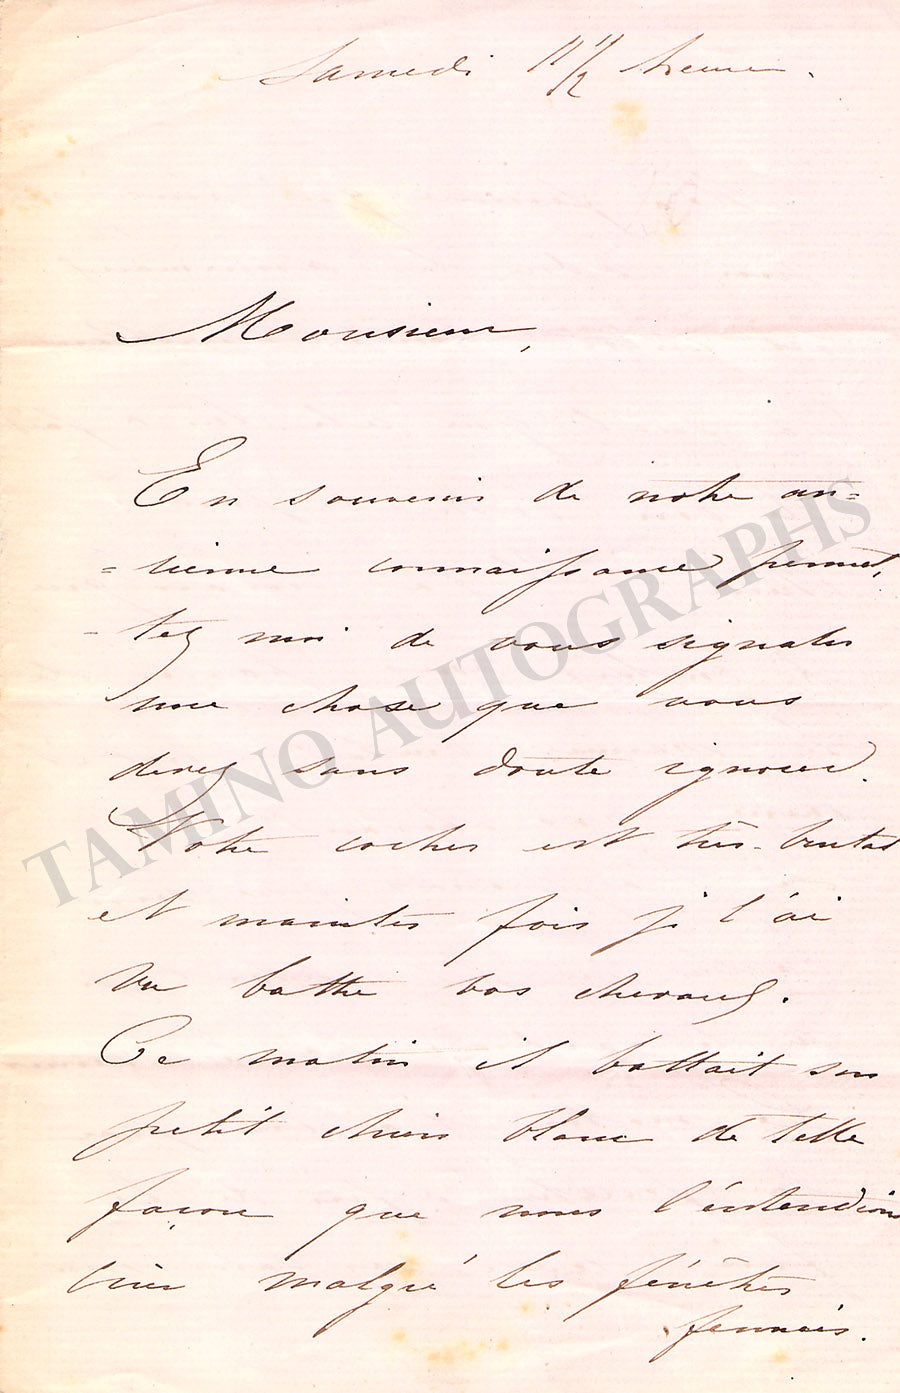 Samedi 11 1/2 heures.
Monsieur,
En souvenir de notre an-
-cienne connaissance permet-
-tez moi de vous signaler
une chose que vous
devez sans doute ignorer.
Votre cocher est très-brutal
et maintes fois je l'ai
vu battre vos chevaux.
Ce matin il battait son
petit chien blanc de telle
façon que nous l'entendions
crier malgré les fenêtres
fermées.
TAMINO AUTOGRAPHS